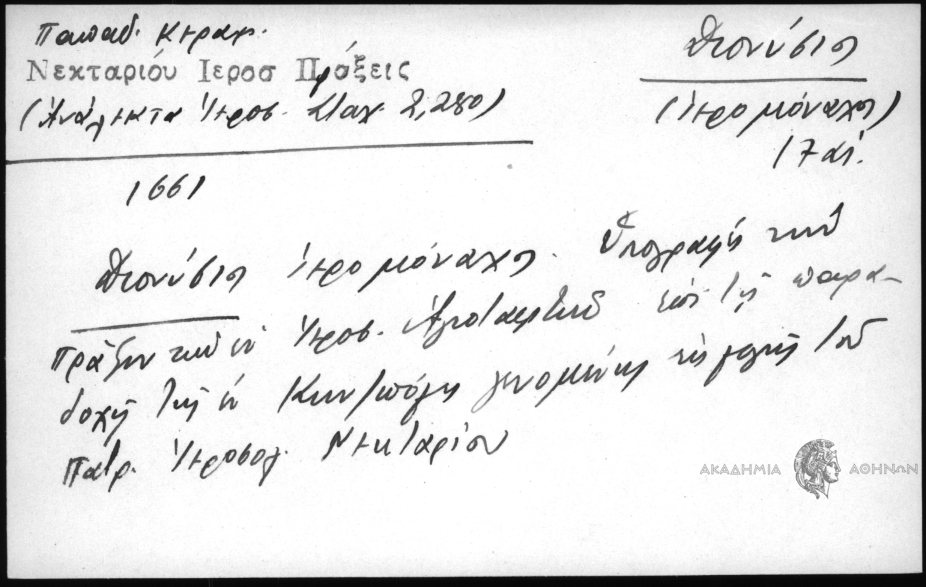 Παπαδ. Κεραμ.
Νεκταρίου Ιεροσ Πράξεις
(Ἀνάλεκτα Ἱεροσ. Σταχ. 2, 280)
Διονύσιος
(Ἱερομόναχος)
17 αἰ.
1661
Διονύσιος Ἱερομόναχος. Ὑπογραφὴ τῶν
Πράξεων τῶν ἐν Ἱεροσ. Ἁγιοταφιτῶν ἐπὶ τῆς παρα-
δοχῆς τῆς ἐν Κων/πόλει γενομένης ἐκλογῆς τοῦ
Πατρ. Ἱεροσολ. Νεκταρίου
ΑΚΑΔΗΜΙΑ ΑΘΗΝΩΝ